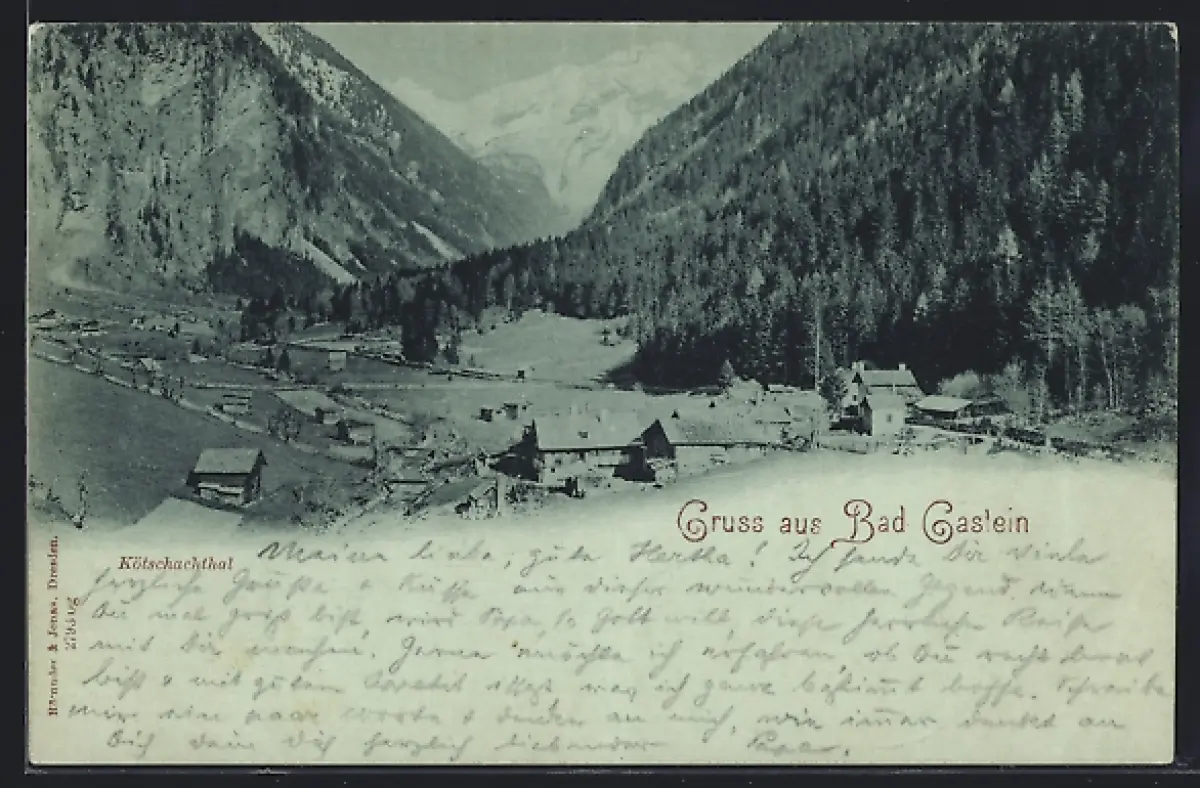 Gruss aus Bad Gastein
Kötschachthal
Meine liebe, gute Hertha! Ich sende Dir viele
herzliche Grüße u Küsse aus dieser wundervollen Gegend. Wenn
Du mal groß bist, wird Papa, so Gott will, diese herrliche Reise
mit Dir machen. Gerne möchte ich erfahren, ob Du recht brav
bist u mit gutem Appetit ißt, was ich ganz bestimmt hoffe. Schreibe
mir ein paar Worte u denke an mich, wie immer denkt an
Dich Dein Dich herzlich liebender Papa.
Dresden.